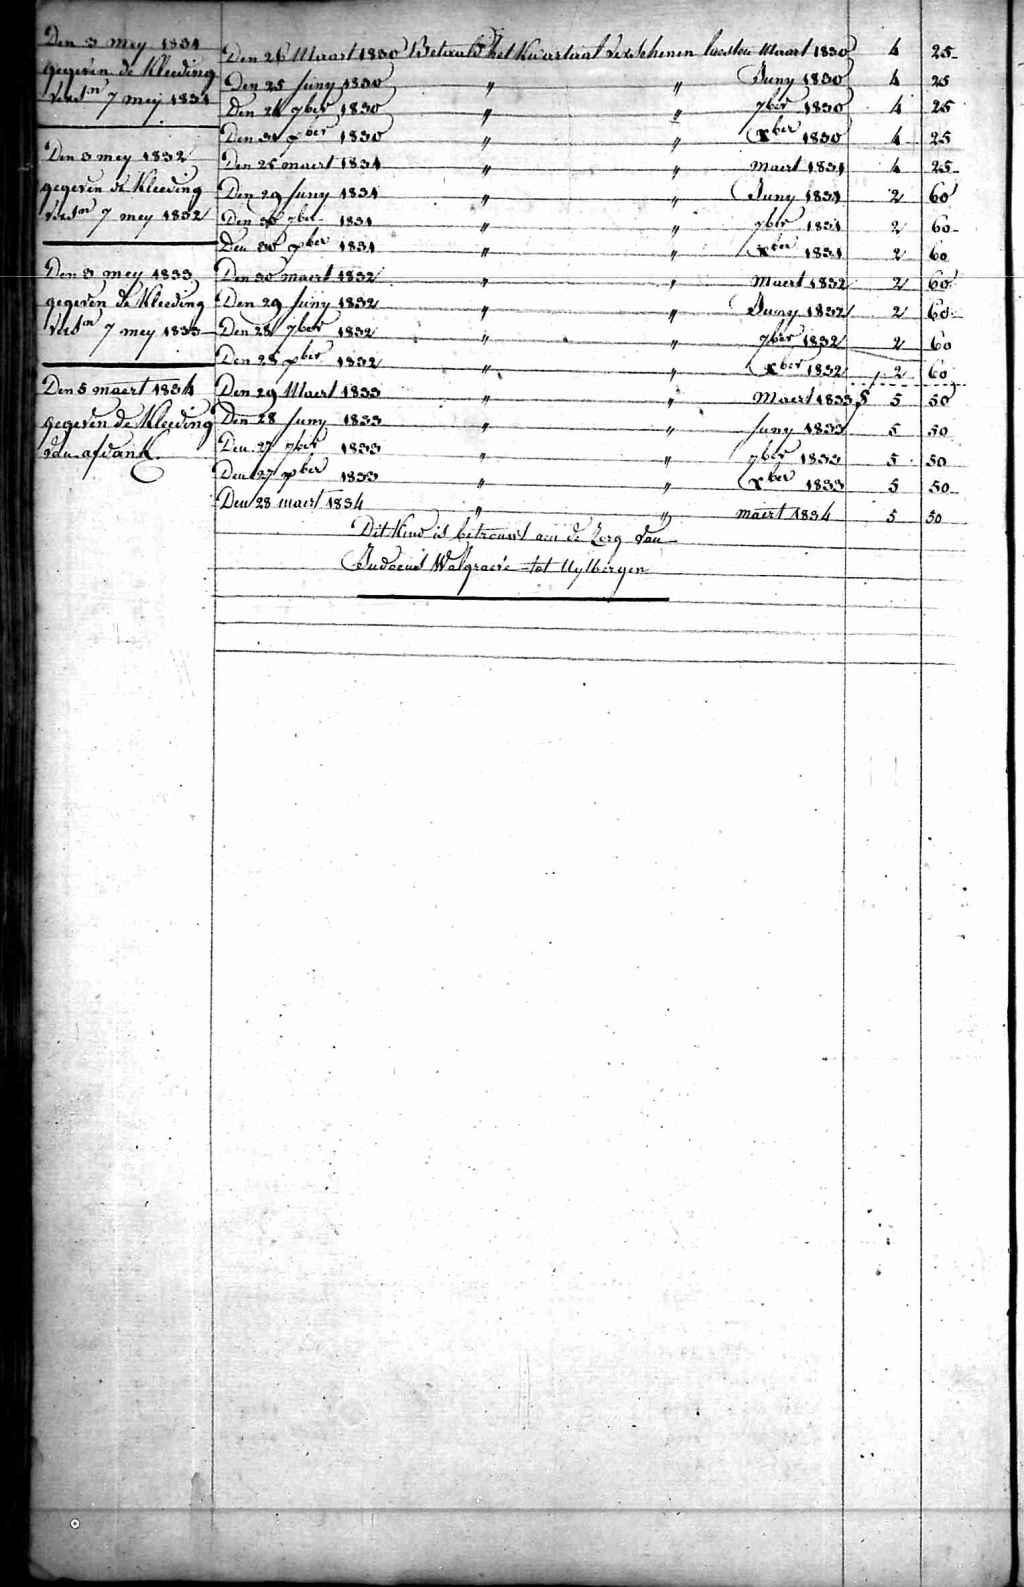 Den 3 mey 1831
gegeven de Kleeding
7 mey 1831
Den 3 mey 1832
gegeven de Kleeding
7 mey 1832
Den 3 mey 1833
gegeven de Kleeding
7 mey 1833
Den 5 maert 1834
gegeven de Kleeding
van afdank.
Den 26 Maart 1830 Betaald het Kwartaal verschenen Maart 1830 4 25
Den 25 Juny 1830 " " Juny 1830 4 25
Den 24 7ber 1830 " " 7ber 1830 4 25
Den 31 xber 1830 " " xber 1830 4 25
Den 25 maert 1831 " " Maert 1831 4 25
Den 29 Juny 1831 " " Juny 1831 2 60
Den 30 7ber 1831 " " 7ber 1831 2 60
Den 30 xber 1831 " " xber 1831 2 60
Den 30 maert 1832 " " Maert 1832 2 60
Den 29 Juny 1832 " " Juny 1832 2 60
Den 28 7ber 1832 " " 7ber 1832 2 60
Den 28 xber 1832 " " xber 1832 2 60
Den 29 Maert 1833 " " Maert 1833 5 50
Den 28 Juny 1833 " " Juny 1833 5 50
Den 27 7ber 1833 " " 7ber 1833 5 50
Den 27 xber 1833 " " xber 1833 5 50
Den 28 maert 1834 " " maert 1834 5 50
Dit Kind is betrouwt aen de Zorg van
Judocus Walgraeve tot Uylbergen